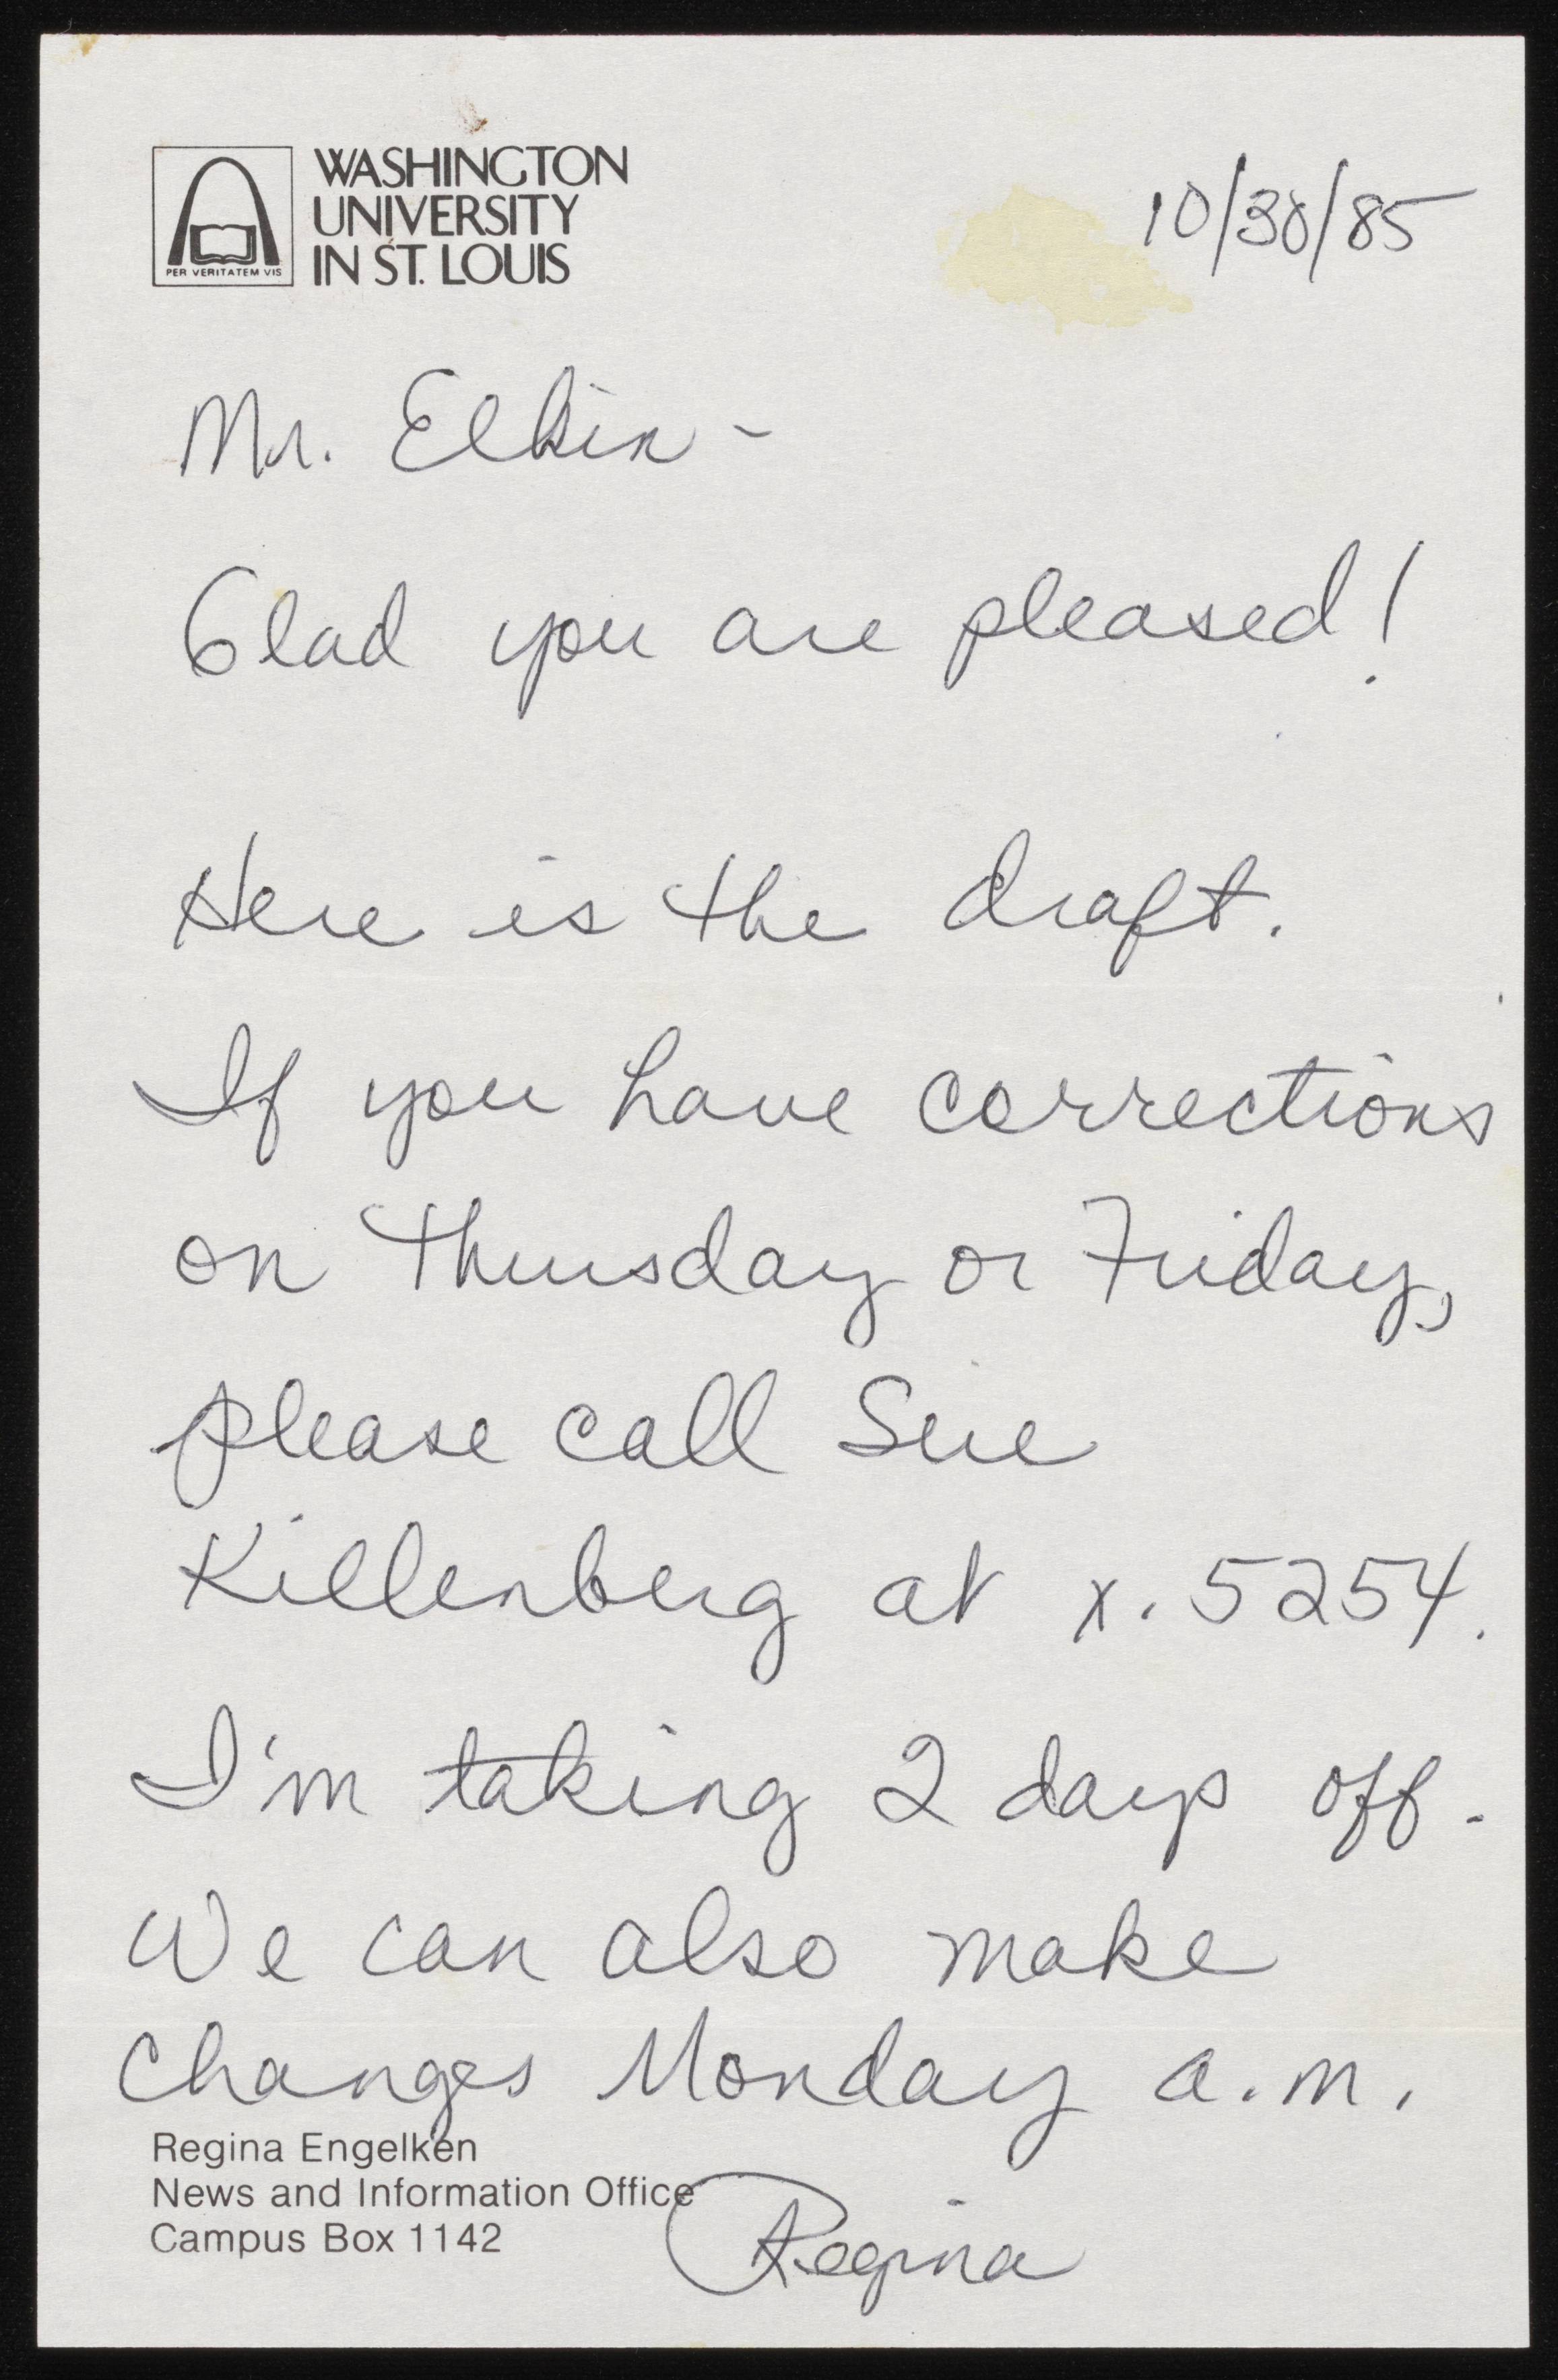 WASHINGTON
UNIVERSITY
IN ST. LOUIS
PER VERITATEM VIS
10/30/85
Mr. Elkin -
Glad you are pleased!
Here is the draft.
If you have corrections
on Thursday or Friday,
please call Sue
Killenberg at x. 5254.
I'm taking 2 days off.
We can also make
changes Monday a.m.
Regina Engelken
News and Information Office
Campus Box 1142
Regina